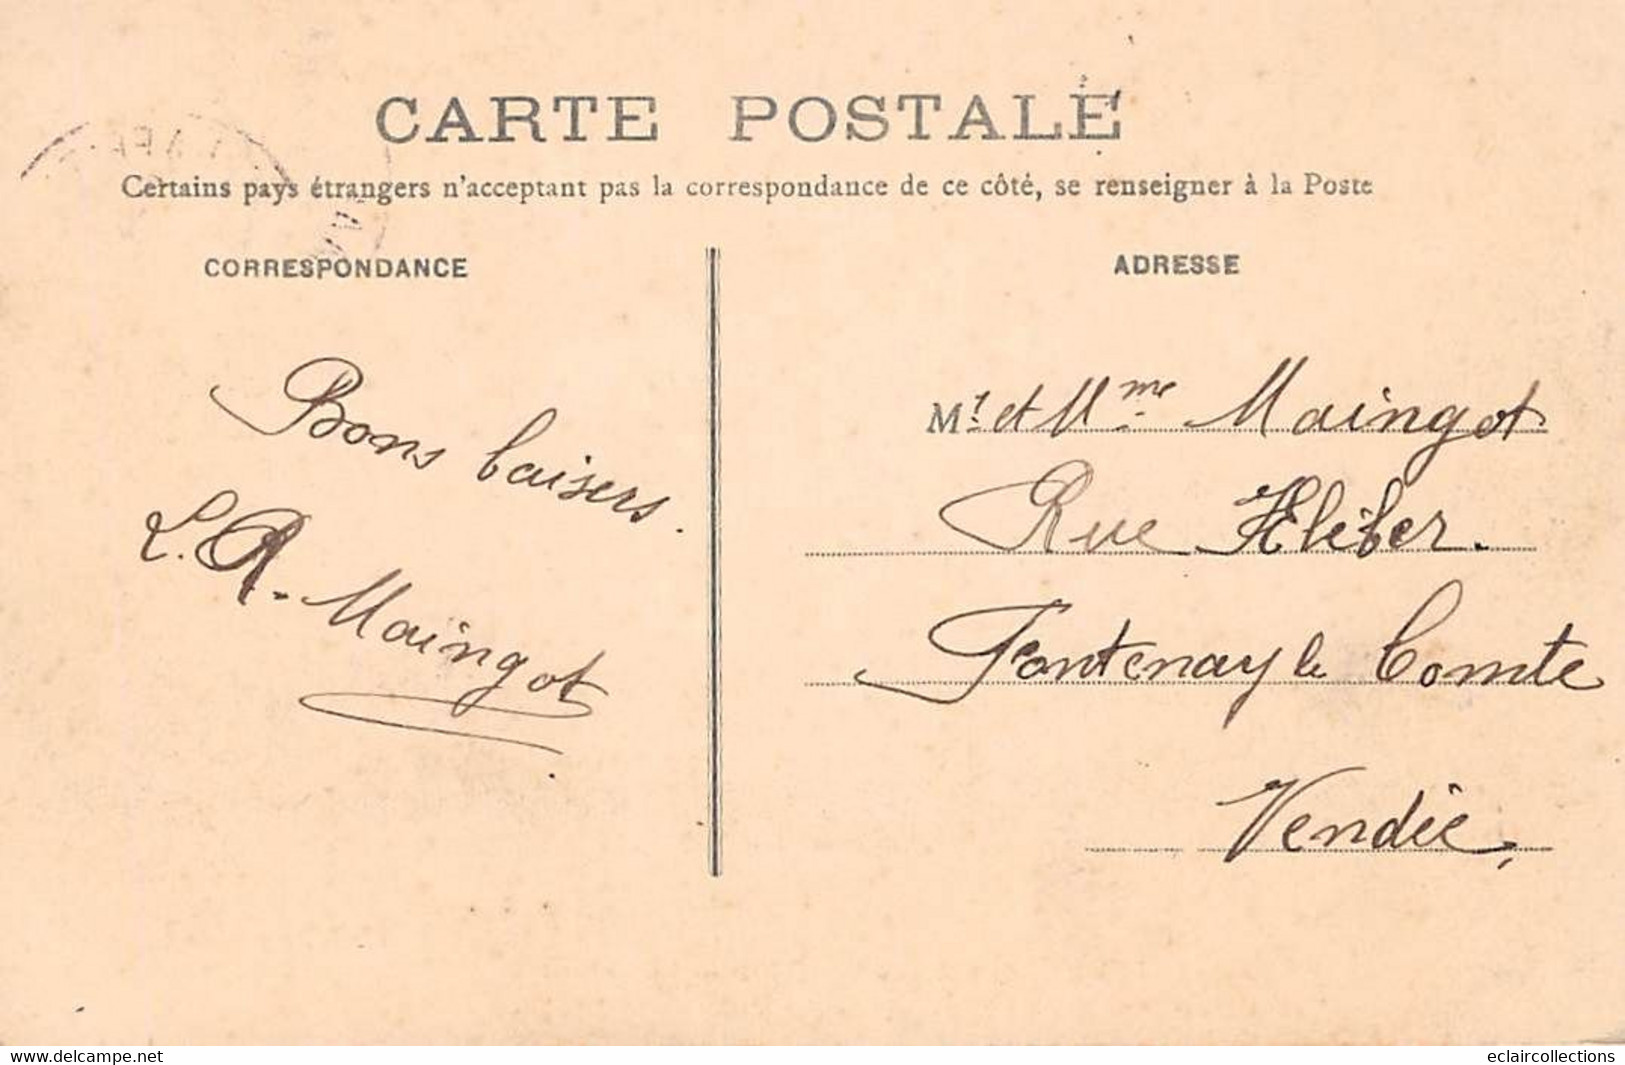 CARTE POSTALE
Certains pays étrangers n'acceptant pas la correspondance de ce côté, se renseigner à la Poste
CORRESPONDANCE
Bons baisers.
L. R. Maingot
ADRESSE
Mr et Mme Maingot
Rue Kléber.
Fontenay le Comte
Vendée,
www.delcampe.net
eclaircollections